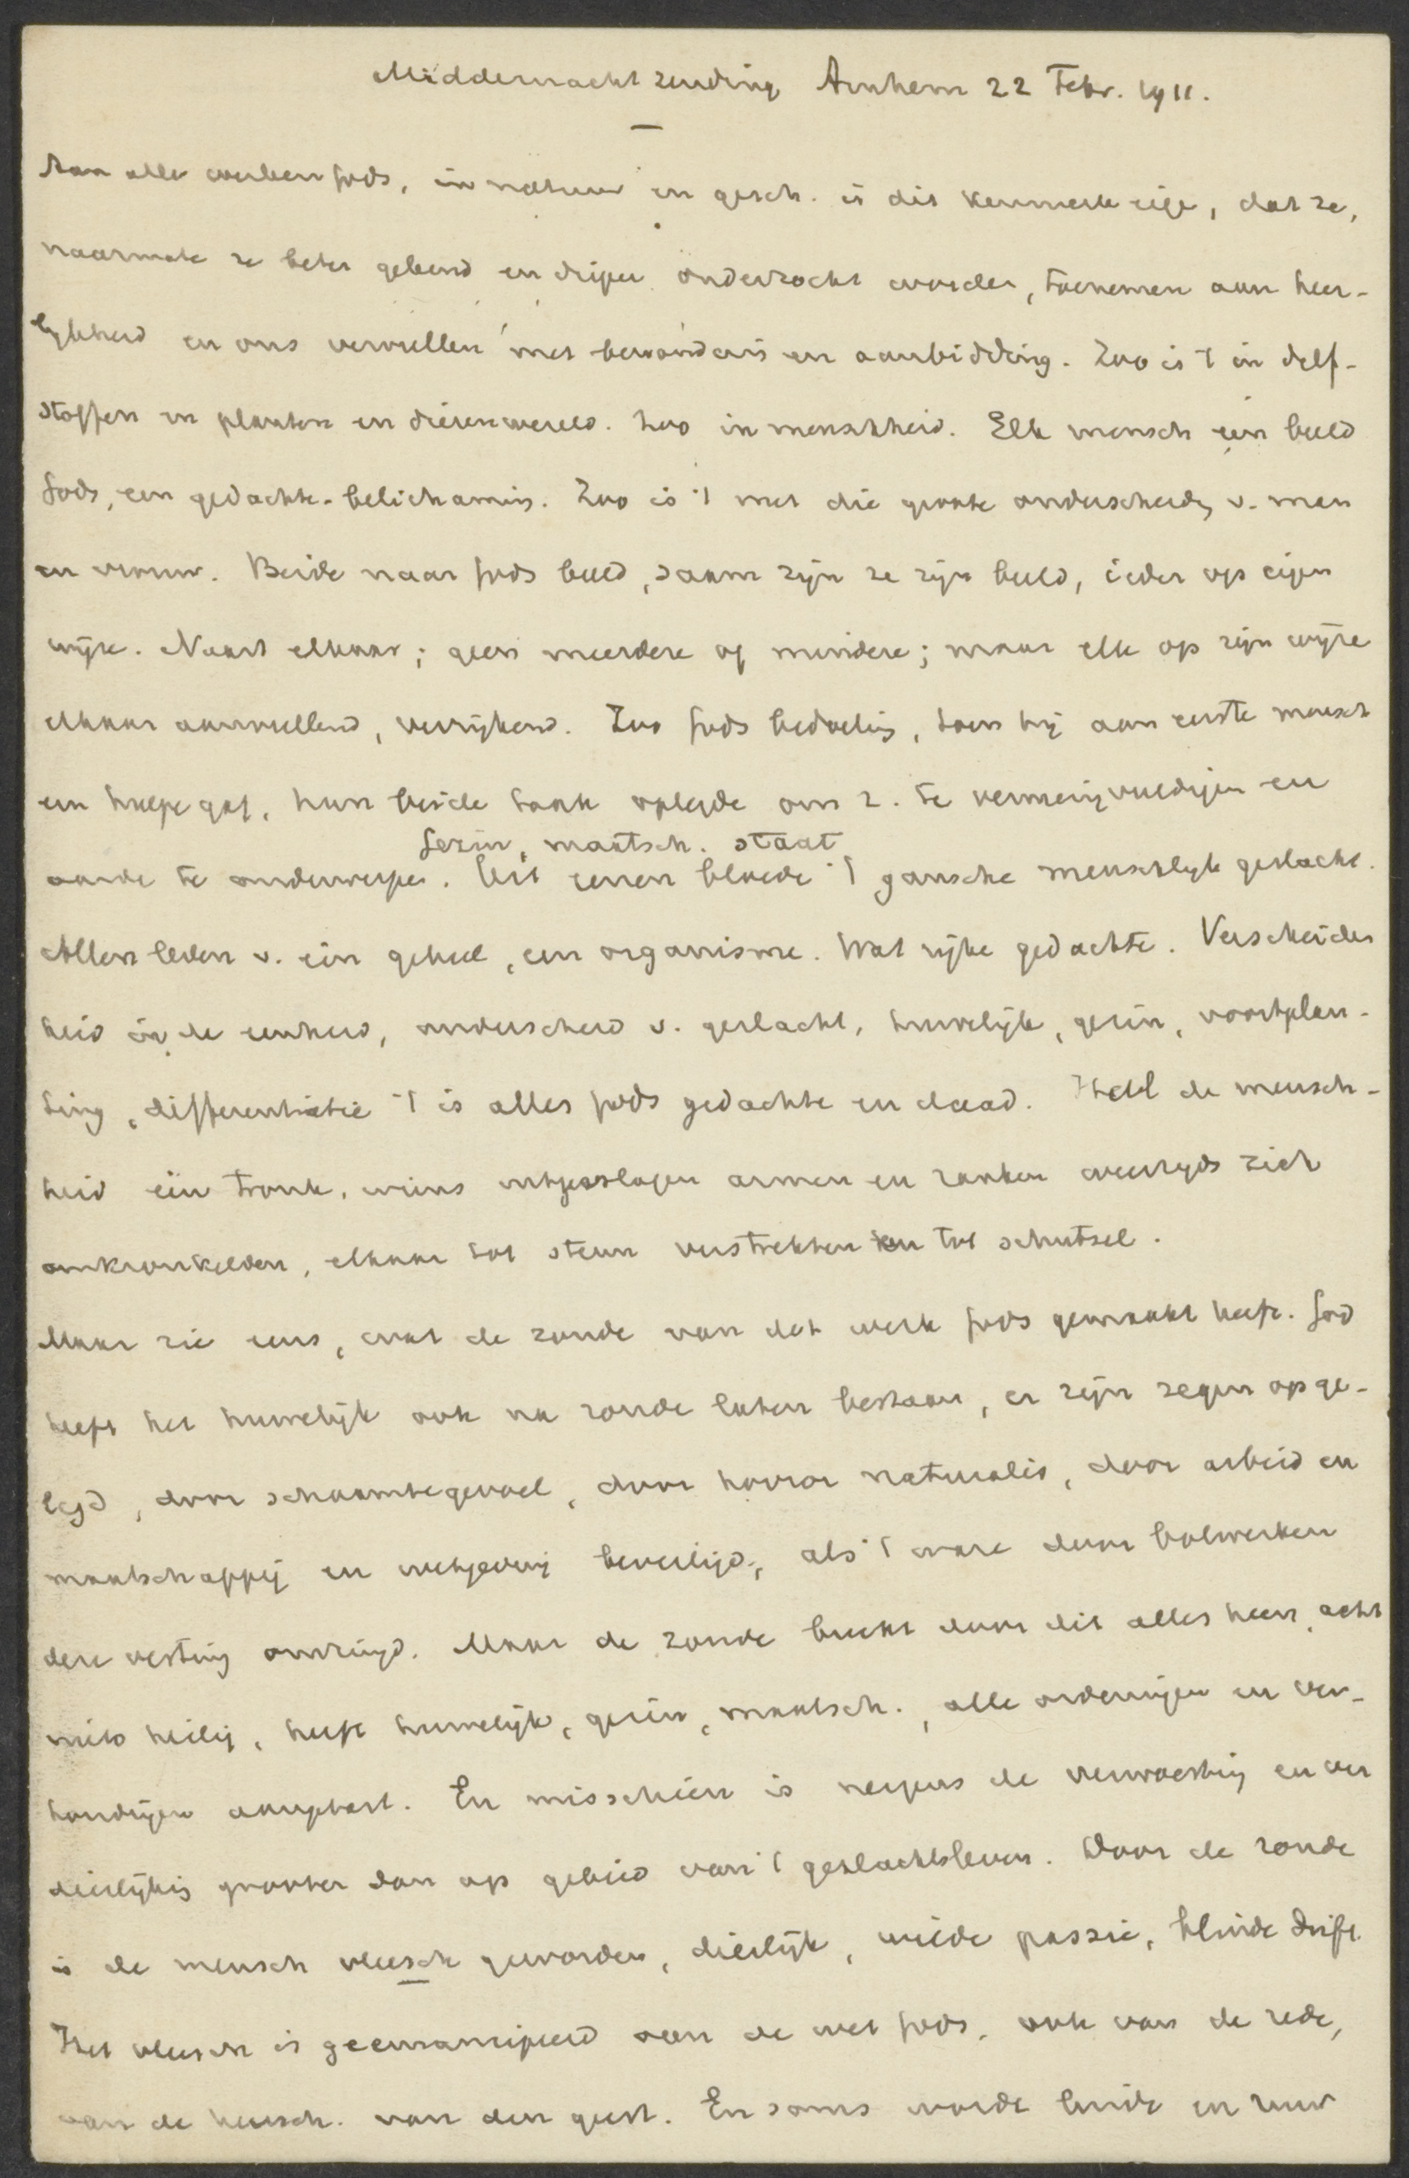 Middernachtzending Arnhem 22 Febr. 1911.
Aan alle werken Gods, in natuur en gesch. is dit kenmerk eige, dat ze,
naarmate ze beter gekend en dieper onderzocht worden, toenemen aan heer-
lykheid en ons vervullen met bewondering en aanbidding. Zoo is 't in delf-
stoffen en planten en dierenwereld. Zoo in menschheid. Elk mensch een beeld
Gods, een gedachte-belichaming. Zoo is 't met die groote onderscheidg v. man
en vrouw. Beide naar Gods beeld, saam zijn ze zijn beeld, ieder op eigen
wijze. Naast elkaar; geen meerdere of mindere; maar elk op zijn wijze
elkaar aanvullend, verrijkend. Zoo Gods bedoeling, toen hij aan eerste mensch
een hulpe gaf, hun beide taak oplegde om z. te vermenigvuldigen en
Gezin, maatsch. staat
aarde te onderwerpen. Uit eenen bloede 't gansche menschlijk geslacht.
Allen leden v. één geheel, een organisme. Wat rijke gedachte. Verscheiden
heid in de eenheid, onderscheid v. geslacht, huwelijk, gezin, voortplan-
ting, differentiatie 't is alles Gods gedachte en daad. Heel de mensch-
heid één tronk, wiens uitgeslagen armen en ranken overzyds zich
omkronkelden, elkaar tot steun verstrekten en tot schutsel.
Maar zie eens, wat de zonde van dat werk Gods gemaakt heeft. God
heeft het huwelijk ook na zonde laten bestaan, er zijn zegen opge-
legd, door schaamtegevoel, door horror naturalis, door arbeid en
maatschappij en wetgeving beveiligd, als 't ware door bolwerken
dere vesting omringd. Maar de zonde breekt door dit alles heen, acht
niets heilig, heeft huwelijk, gezin, maatsch., alle ordeningen en ver-
houdingen aangetast. En misschien is nergens de verwoesting en ver
dierlijking grooter dan op gebied van 't geslachtsleven. Door de zonde
is de mensch vleesch geworden, dierlijk, wilde passie, blinde drift.
Het vleesch is geemancipeerd van de wet Gods, ook van de rede,
van de heersch. van den geest. En soms wordt luide en ruw